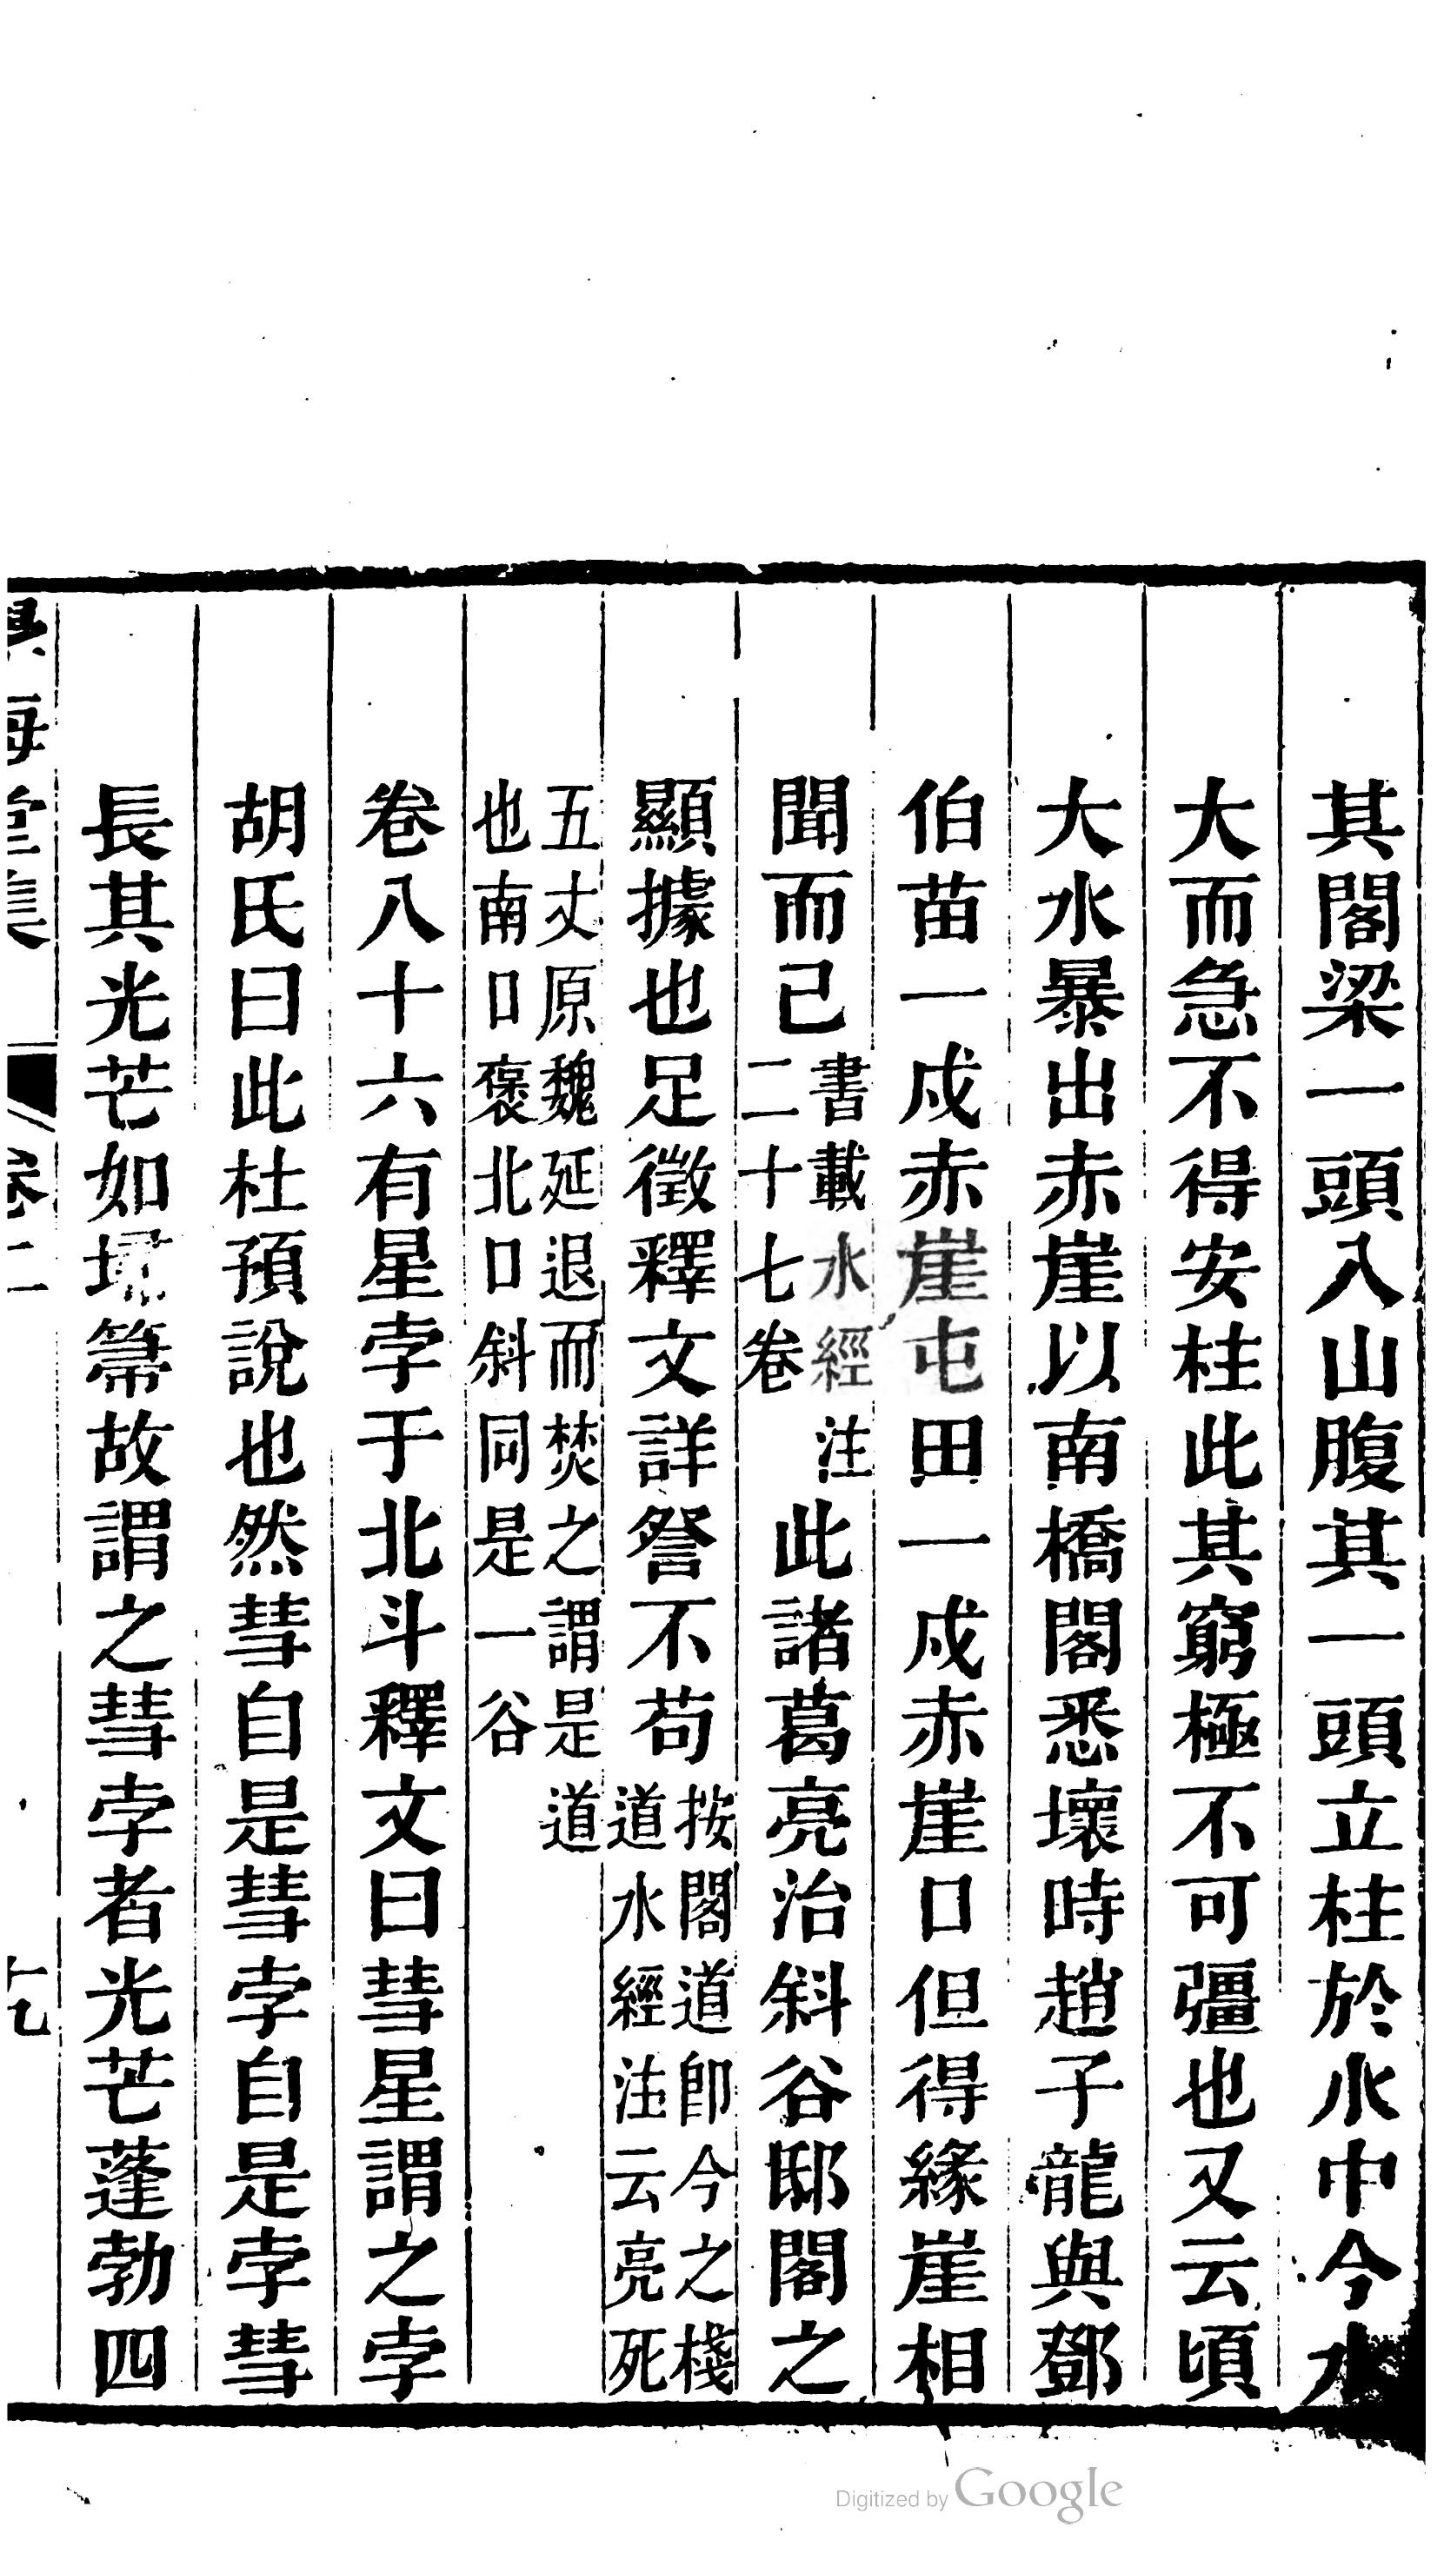 其閣梁一頭入山腹其一頭立柱於水中今水
大而急不得安柱此其窮極不可彊也又云頃
大水暴出赤崖以南橋閣悉壞時趙子龍與鄧
伯苗一戍赤崖屯田一戍赤崖口但得緣崖相
聞而已書載水經注二十七卷此諸葛亮治斜谷邸閣之
顯據也足徵釋文詳詧不苟按閣道卽今之棧道水經注云亮死
五丈原魏延退而焚之謂是道
也南口褒北口斜同是一谷
卷八十六有星孛于北斗釋文曰彗星謂之孛
胡氏曰此杜預說也然彗自是彗孛自是孛彗
長其光芒如埽箒故謂之彗孛者光芒蓬勃四
海堂集 卷二
Digitized by Google